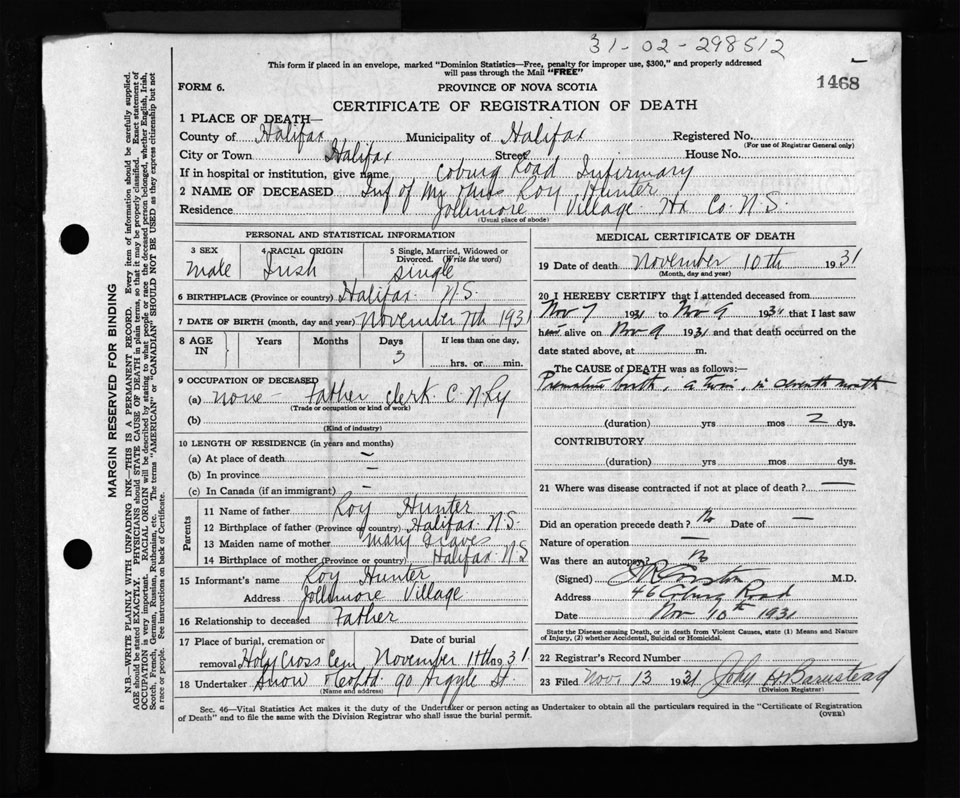 31-02-298512
This form if placed in an envelope, marked "Dominion Statistics—Free, penalty for improper use, $300," and properly addressed
will pass through the Mail "FREE"
1468
FORM 6.
PROVINCE OF NOVA SCOTIA
CERTIFICATE OF REGISTRATION OF DEATH
1 PLACE OF DEATH—
County of Halifax Municipality of Halifax Registered No.
(For use of Registrar General only)
City or Town Halifax Street House No.
If in hospital or institution, give name Coburg Road Infirmary
2 NAME OF DECEASED Inf of Mr Roy Hunter
Residence Jollimore Village Hx Co. N.S.
(Usual place of abode)
PERSONAL AND STATISTICAL INFORMATION
3 SEX 4 RACIAL ORIGIN 5 Single, Married, Widowed or
Divorced. (Write the word)
Male Irish single
6 BIRTHPLACE (Province or country) Halifax N.S.
7 DATE OF BIRTH (month, day and year) November 7th 1931
8 AGE IN Years Months Days If less than one day,
3
hrs. or min.
9 OCCUPATION OF DECEASED
(a) none - Father clerk C. N. Ry
(Trade or occupation or kind of work)
(b)
(Kind of industry)
10 LENGTH OF RESIDENCE (in years and months)
(a) At place of death –
(b) In province –
(c) In Canada (if an immigrant) –
Parents
11 Name of father Roy Hunter
12 Birthplace of father (Province or country) Halifax N.S.
13 Maiden name of mother Mary Graves
14 Birthplace of mother (Province or country) Halifax N.S
15 Informant's name Roy Hunter
Address Jollimore Village
16 Relationship to deceased Father
17 Place of burial, cremation or Date of burial
removal Holy Cross Cem, November 11th 1931
18 Undertaker Snow & Co Ltd 90 Argyle St.
(Name and address)
MEDICAL CERTIFICATE OF DEATH
19 Date of death November 10th 1931
(Month, day and year)
20 I HEREBY CERTIFY that I attended deceased from
Nov 7 1931 to Nov 9 1931 that I last saw
him alive on Nov 9 1931 and that death occurred on the
date stated above, at m.
The CAUSE of DEATH was as follows:—
Premature birth, a twin, in seventh month
(duration) yrs mos 2 dys.
CONTRIBUTORY
(duration) yrs. mos. dys.
21 Where was disease contracted if not at place of death? —
Did an operation precede death? No Date of —
Nature of operation —
Was there an autopsy? No
(Signed) M.D.
Address 46 Coburg Road
Date Nov 10th 1931
State the Disease causing Death, or in death from Violent Causes, state (1) Means and Nature
of Injury, (2) whether Accidental, Suicidal or Homicidal.
22 Registrar's Record Number
23 Filed Nov. 13 1931 John H Barnstead
(Division Registrar)
Sec. 46—Vital Statistics Act makes it the duty of the Undertaker or person acting as Undertaker to obtain all the particulars required in the "Certificate of Registration
of Death" and to file the same with the Division Registrar who shall issue the burial permit.
(OVER)
MARGIN RESERVED FOR BINDING
N.B.—WRITE PLAINLY WITH UNFADING INK—THIS IS A PERMANENT RECORD. Every item of information should be carefully supplied.
AGE should be stated EXACTLY. PHYSICIANS should STATE CAUSE OF DEATH in plain terms, so that it may be properly classified. Exact statement of
OCCUPATION is very important. RACIAL ORIGIN will be described by stating to what people or race the deceased person belonged, whether English, Irish,
Scotch, French, German, Russian, Ruthenian, etc. The terms "AMERICAN" or "CANADIAN" SHOULD NOT BE USED as they express citizenship but not
a race or people. See instructions on back of Certificate.